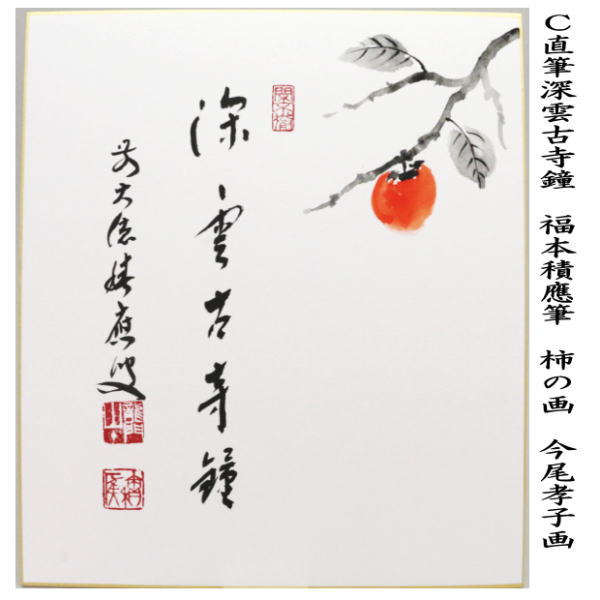 C直筆深雲古寺鐘 福本積應筆 柿の画 今尾孝子画
深雲古寺鐘
前大徳積應叟